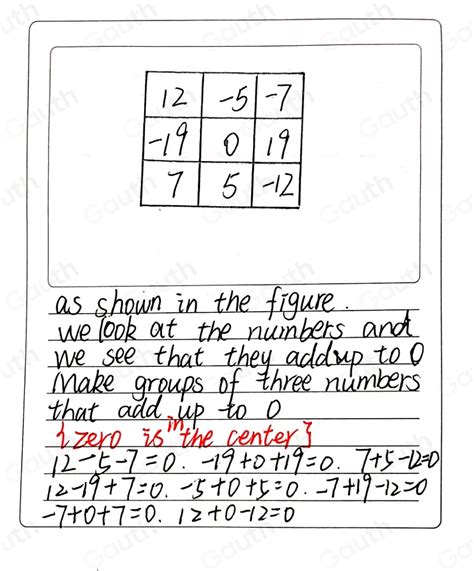 12 -5 -7
-19 0 19
7 5 -12
as shown in the figure.
we look at the numbers and
we see that they add up to 0
Make groups of three numbers
that add up to 0
{zero is in the center}
12-5-7=0. -19+0+19=0. 7+5-12=0
12-19+7=0. -5+0+5=0. -7+19-12=0
-7+0+7=0. 12+0-12=0